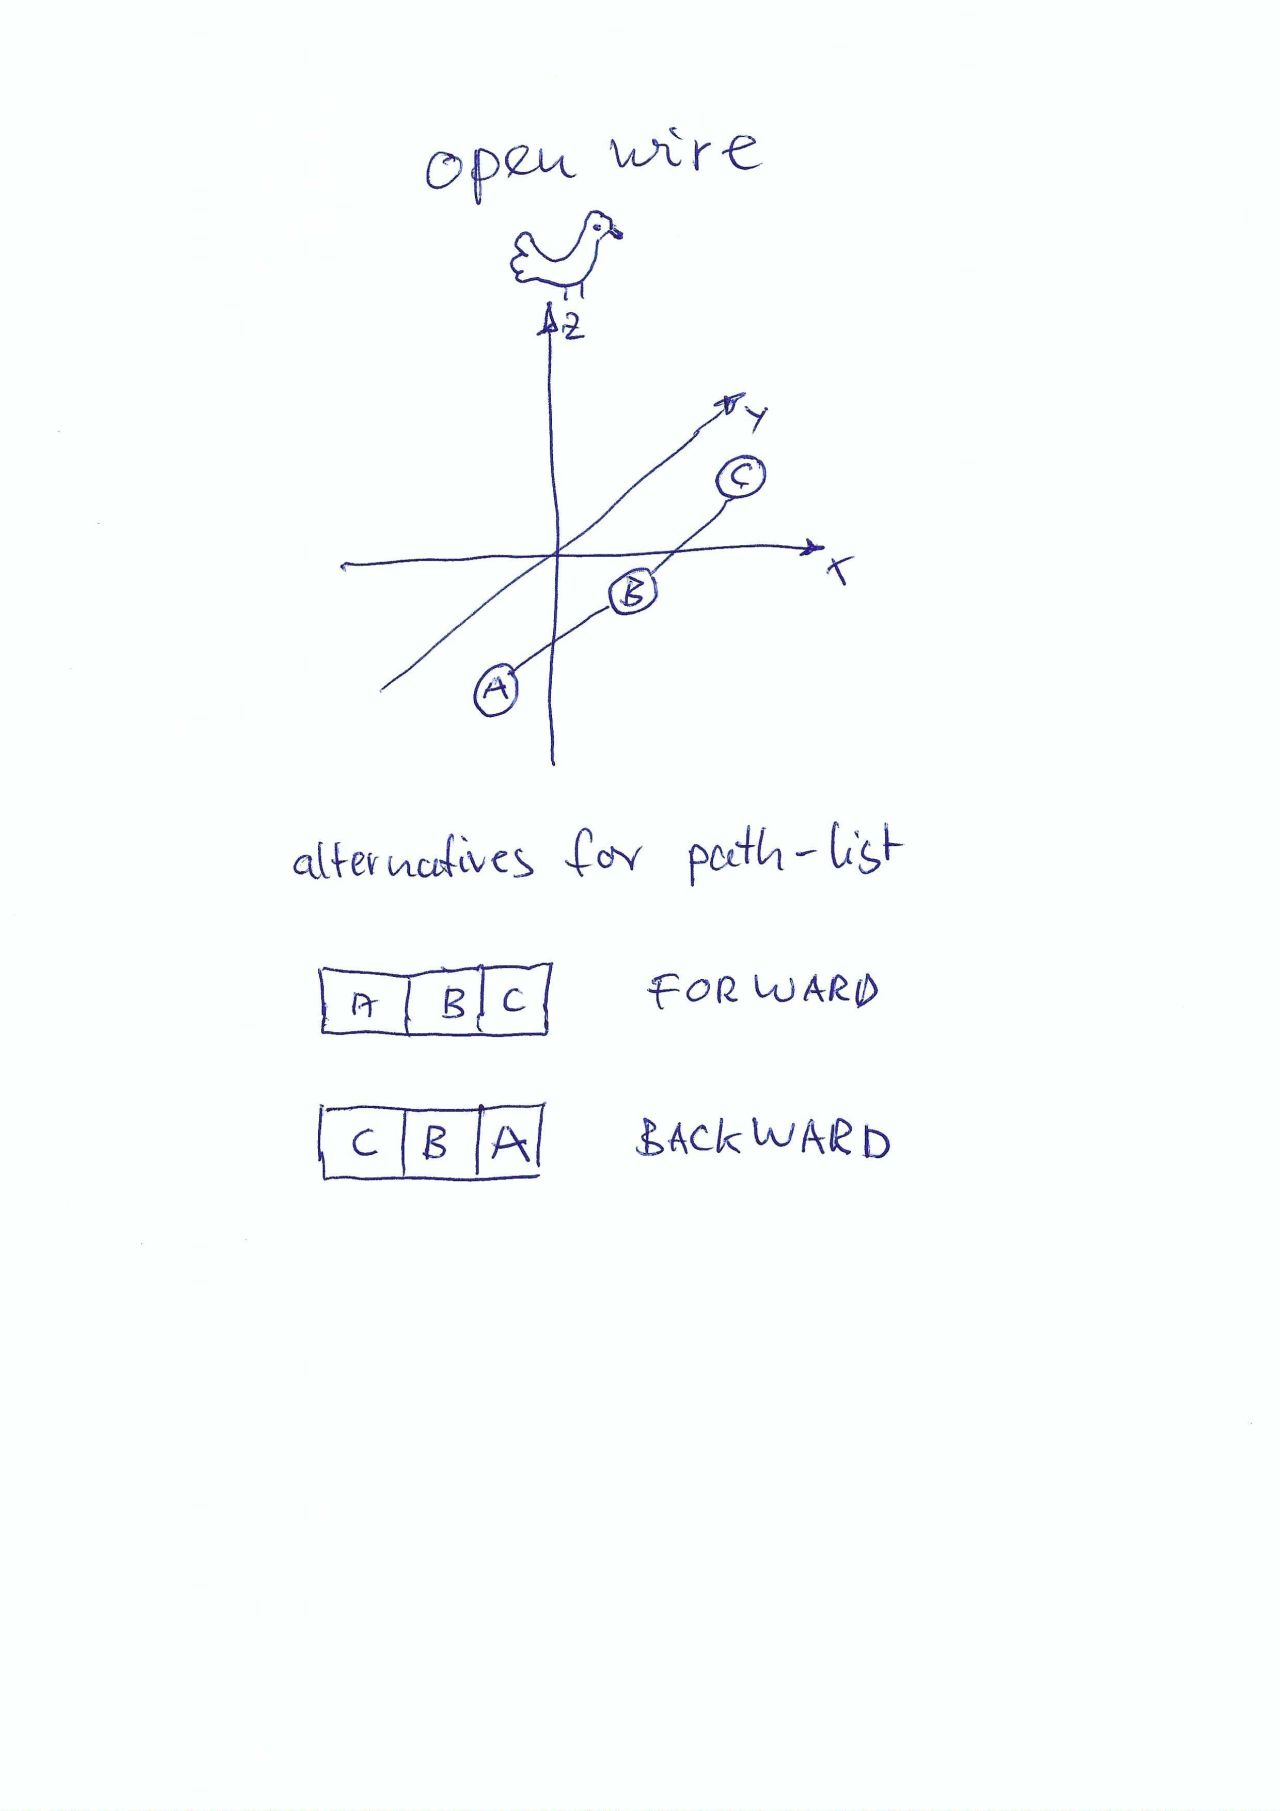 open wire
Z
Y
C
X
B
A
alternatives for path-list
A B C FORWARD
C B A BACKWARD